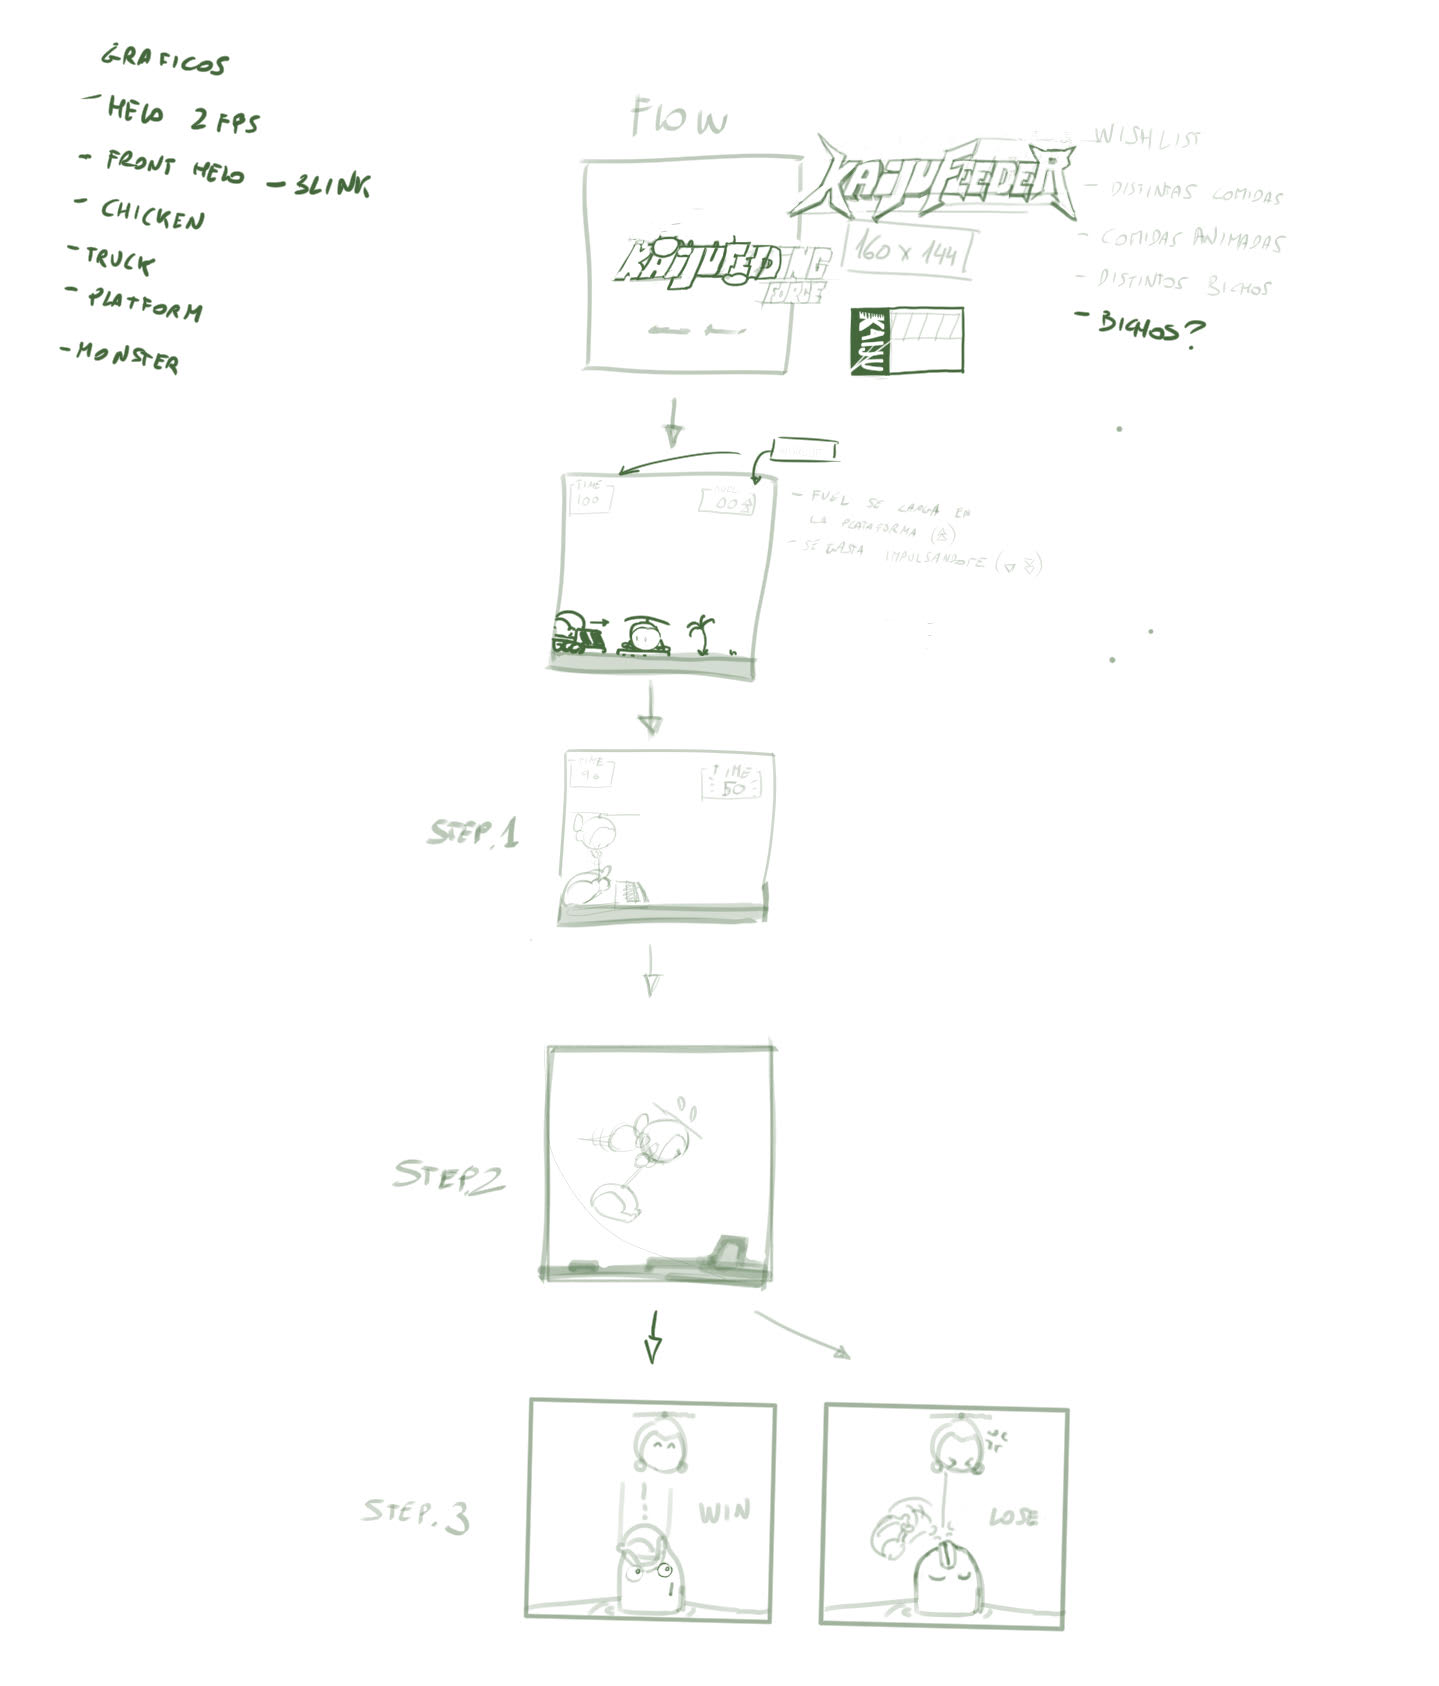 GRAFICOS
- HELO 2 FPS
- FRONT HELO - BLINK
- CHICKEN
- TRUCK
- PLATFORM
- MONSTER
FLOW
KAIJUFEEDER
160 x 144
KAIJUFEEDING
FORCE
KAIJU
WISHLIST
- DISTINTAS COMIDAS
- COMIDAS ANIMADAS
- DISTINTOS BICHOS
- BICHOS?
TIME
100
FUEL
00
- FUEL SE CARGA EN
LA PLATAFORMA
- SE GASTA IMPULSANDOTE
STEP.1
TIME
96
TIME
50
STEP.2
STEP.3
WIN
LOSE